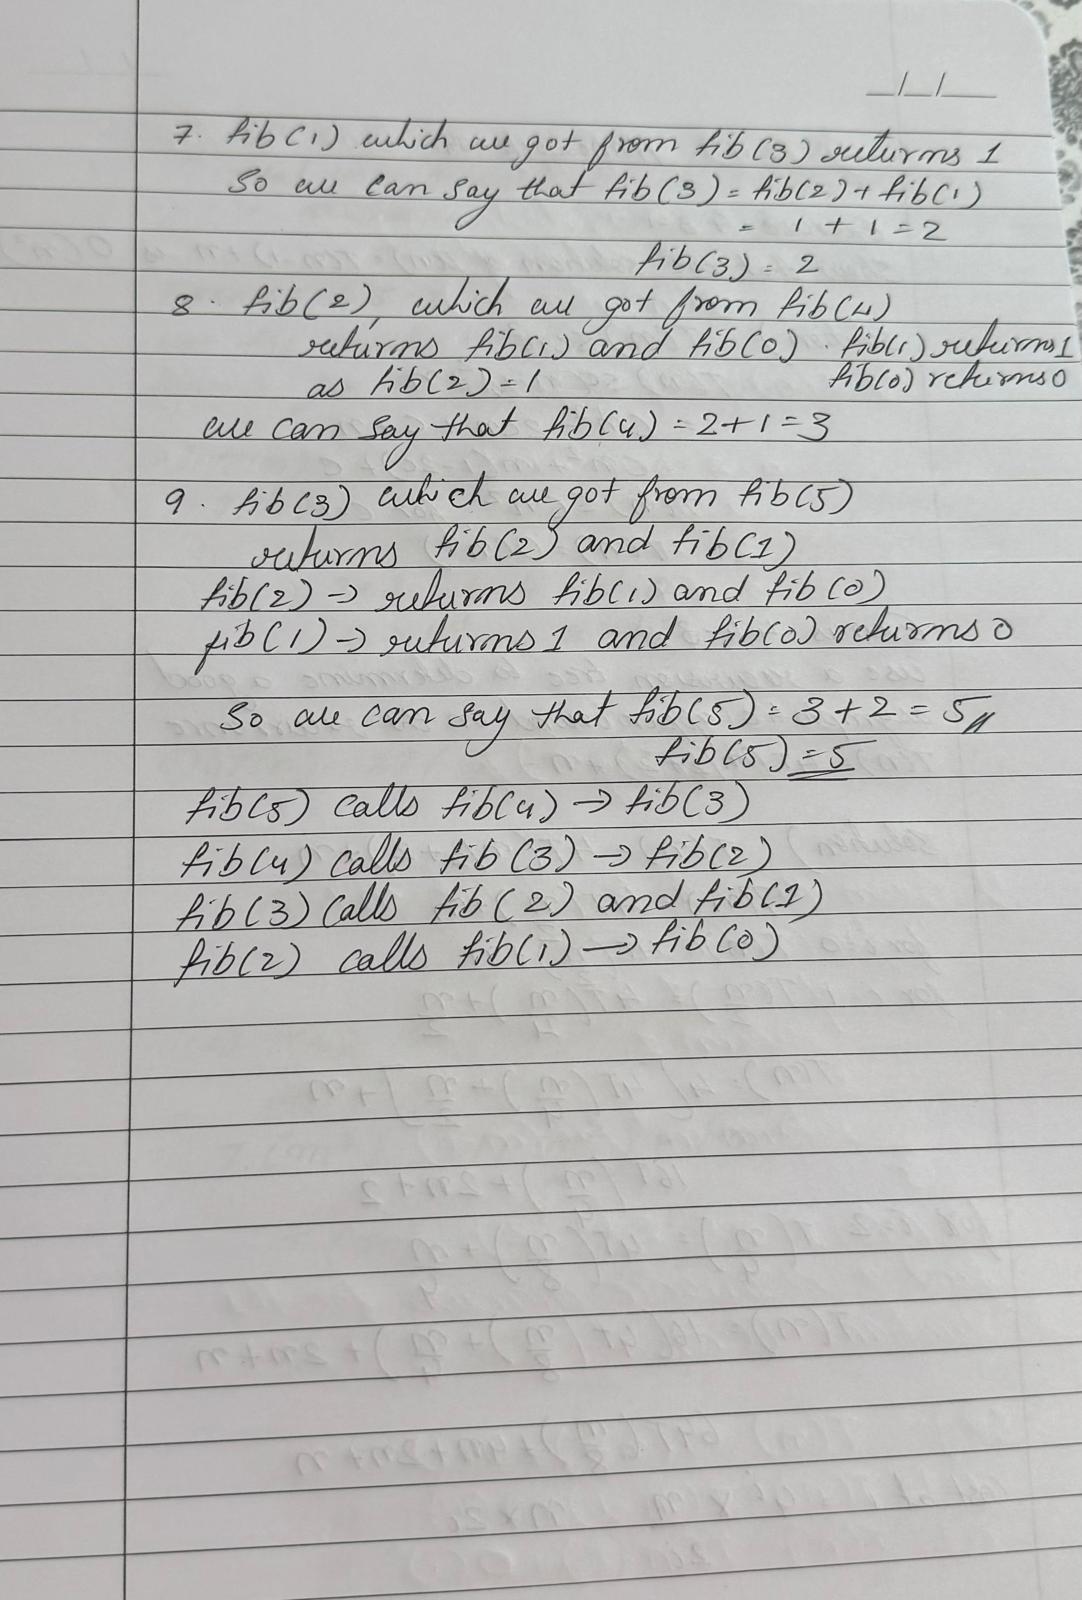 _/_/_
7. fib(1) which we got from fib(3) returns 1
So we can say that fib(3) = fib(2) + fib(1)
= 1 + 1 = 2
fib(3) = 2
8. fib(2), which we got from fib(4)
returns fib(1) and fib(0). fib(1) returns 1
as fib(2) = 1 fib(0) returns 0
we can say that fib(4) = 2+1 = 3
9. fib(3) which we got from fib(5)
returns fib(2) and fib(1)
fib(2) → returns fib(1) and fib(0)
fib(1) → returns 1 and fib(0) returns 0
So we can say that fib(5) = 3+2 = 5//
fib(5) = 5
fib(5) calls fib(4) → fib(3)
fib(4) calls fib(3) → fib(2)
fib(3) calls fib(2) and fib(1)
fib(2) calls fib(1) → fib(0)